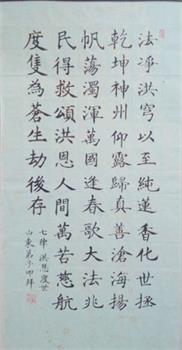 法淨洪穹以至純蓮香化世拯
乾坤神州仰露歸真善滄海揚
帆蕩濁渾萬國逢春歌大法兆
民得救頌洪恩人間萬苦慈航
度隻為蒼生劫後存
七律 洪恩度世
山東弟子叩拜